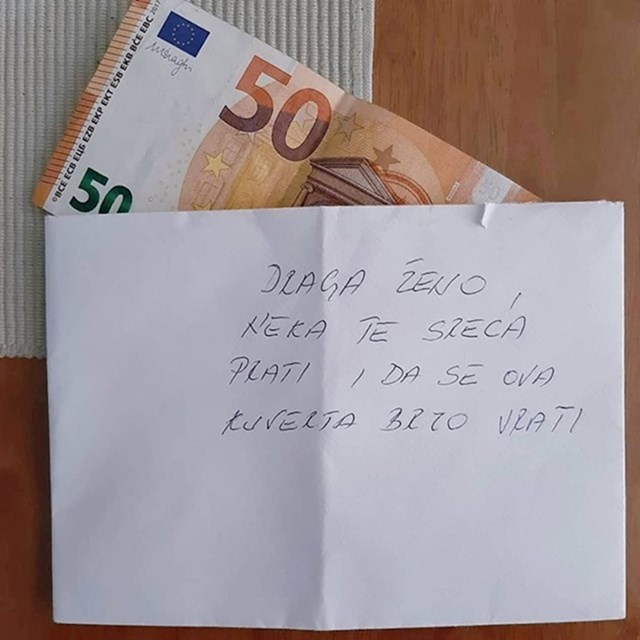 ©BCE ECB ЕЦБ EZB EKP EKT ESB EKB BĊE EBC
50
50
DRAGA ŽENO,
NEKA TE SREĆA
PRATI I DA SE OVA
KUVERTA BRZO VRATI